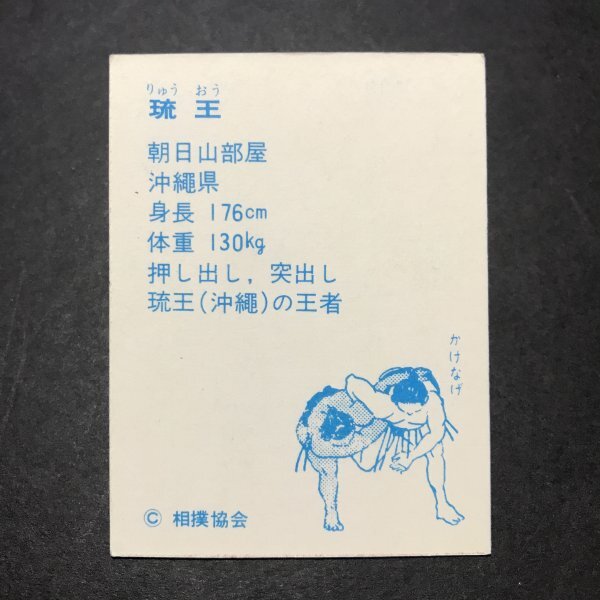 りゅう おう
琉王
朝日山部屋
沖繩県
身長 176cm
体重 130kg
押し出し，突出し
琉王(沖繩)の王者
かけなげ
© 相撲協会